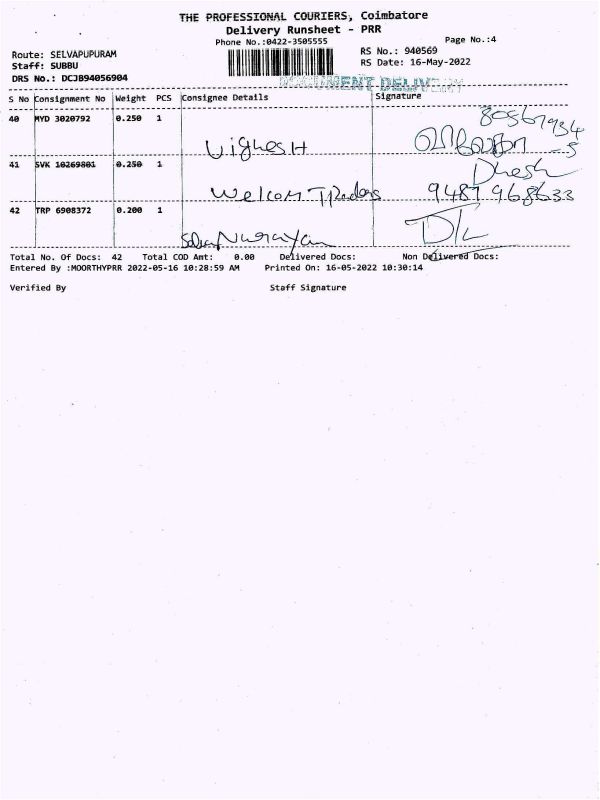 THE PROFESSIONAL COURIERS, Coimbatore
Delivery Runsheet - PRR
Phone No.:0422-3505555
Page No.:4
Route: SELVAPUPURAM
Staff: SUBBU
DRS No.: DCJB94056904
RS No.: 940569
RS Date: 16-May-2022
DOCUMENT DELIVERY
S No Consignment No Weight PCS Consignee Details Signature
40 MYD 3020792 0.250 1
Vighesh
41 SVK 10269801 0.250 1
Dhesh
Welcom Traders 9487968633
42 TRP 6908372 0.200 1
Selva Narayan
Total No. Of Docs: 42 Total COD Amt: 0.00 Delivered Docs: Non Delivered Docs:
Entered By :MOORTHYPRR 2022-05-16 10:28:59 AM Printed On: 16-05-2022 10:30:14
Verified By Staff Signature